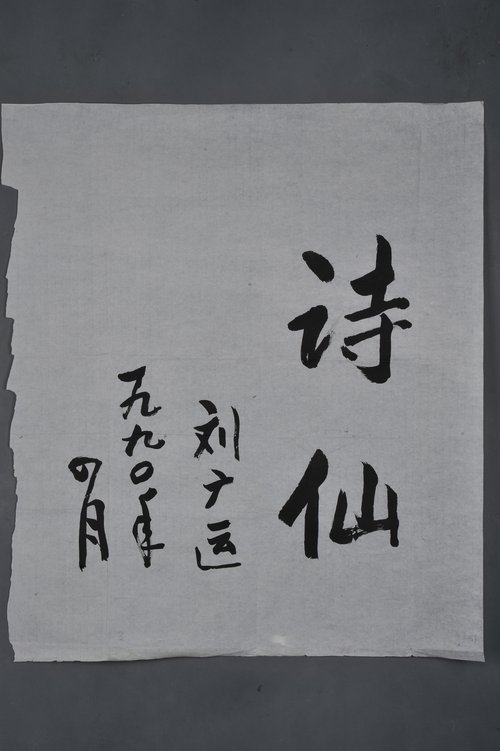 诗仙
刘广运
一九九〇年
四月